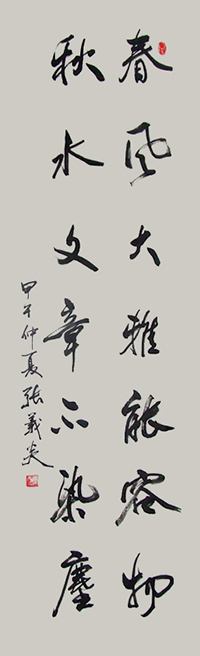 春风大雅能容物
秋水文章不染尘
甲午仲夏張義炎